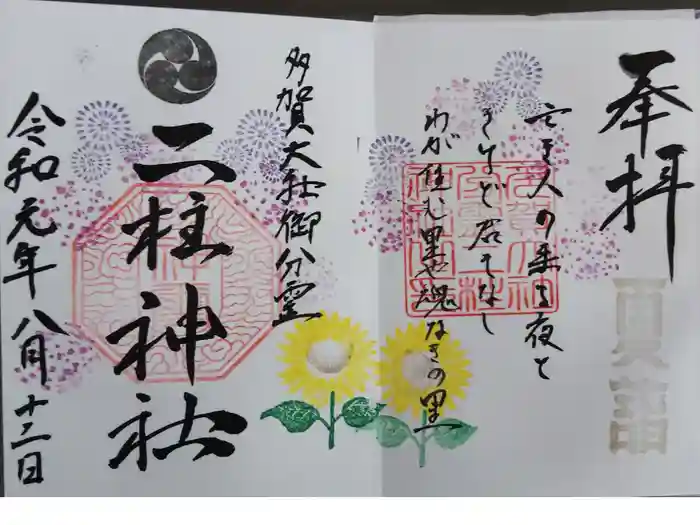 奉拝
夏詣
亡き人の来る夜と
きけど君もなし
わが住む里や魂なきの里
多賀大社御分霊
二柱神社
令和元年八月十二日